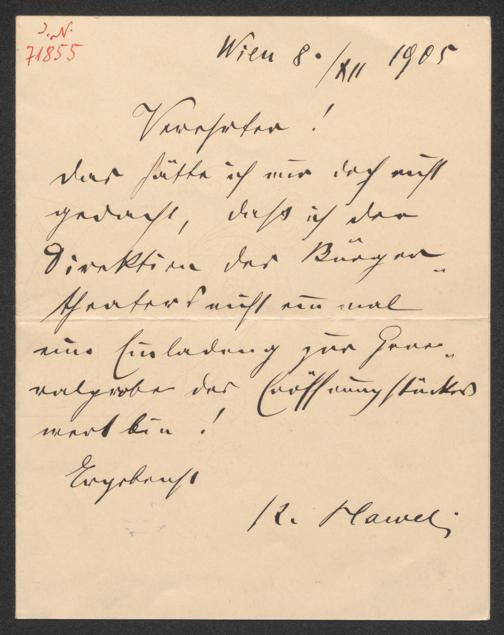 J.N.
71855
Wien 8./XII 1905
Verehrter!
Das hätte ich mir doch nicht
gedacht, daß ich der
Direktion des Bürger-
theaters nicht ein mal
eine Einladung zur Gene-
ralprobe des Eröffnungstückes
wert bin!
Ergebenst
K. Hawel